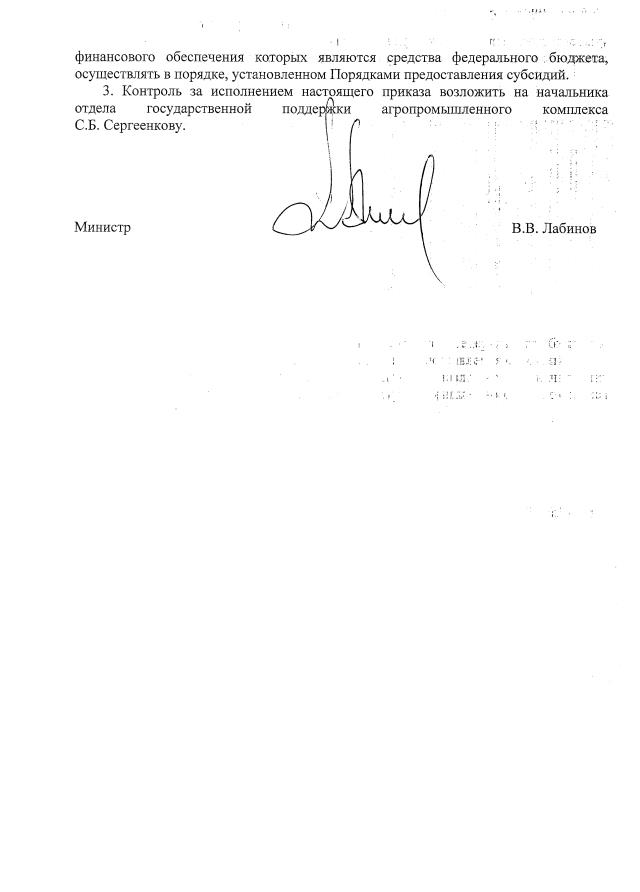 финансового обеспечения которых являются средства федерального бюджета,
осуществлять в порядке, установленном Порядками предоставления субсидий.
3. Контроль за исполнением настоящего приказа возложить на начальника
отдела государственной поддержки агропромышленного комплекса
С.Б. Сергеенкову.
Министр В.В. Лабинов